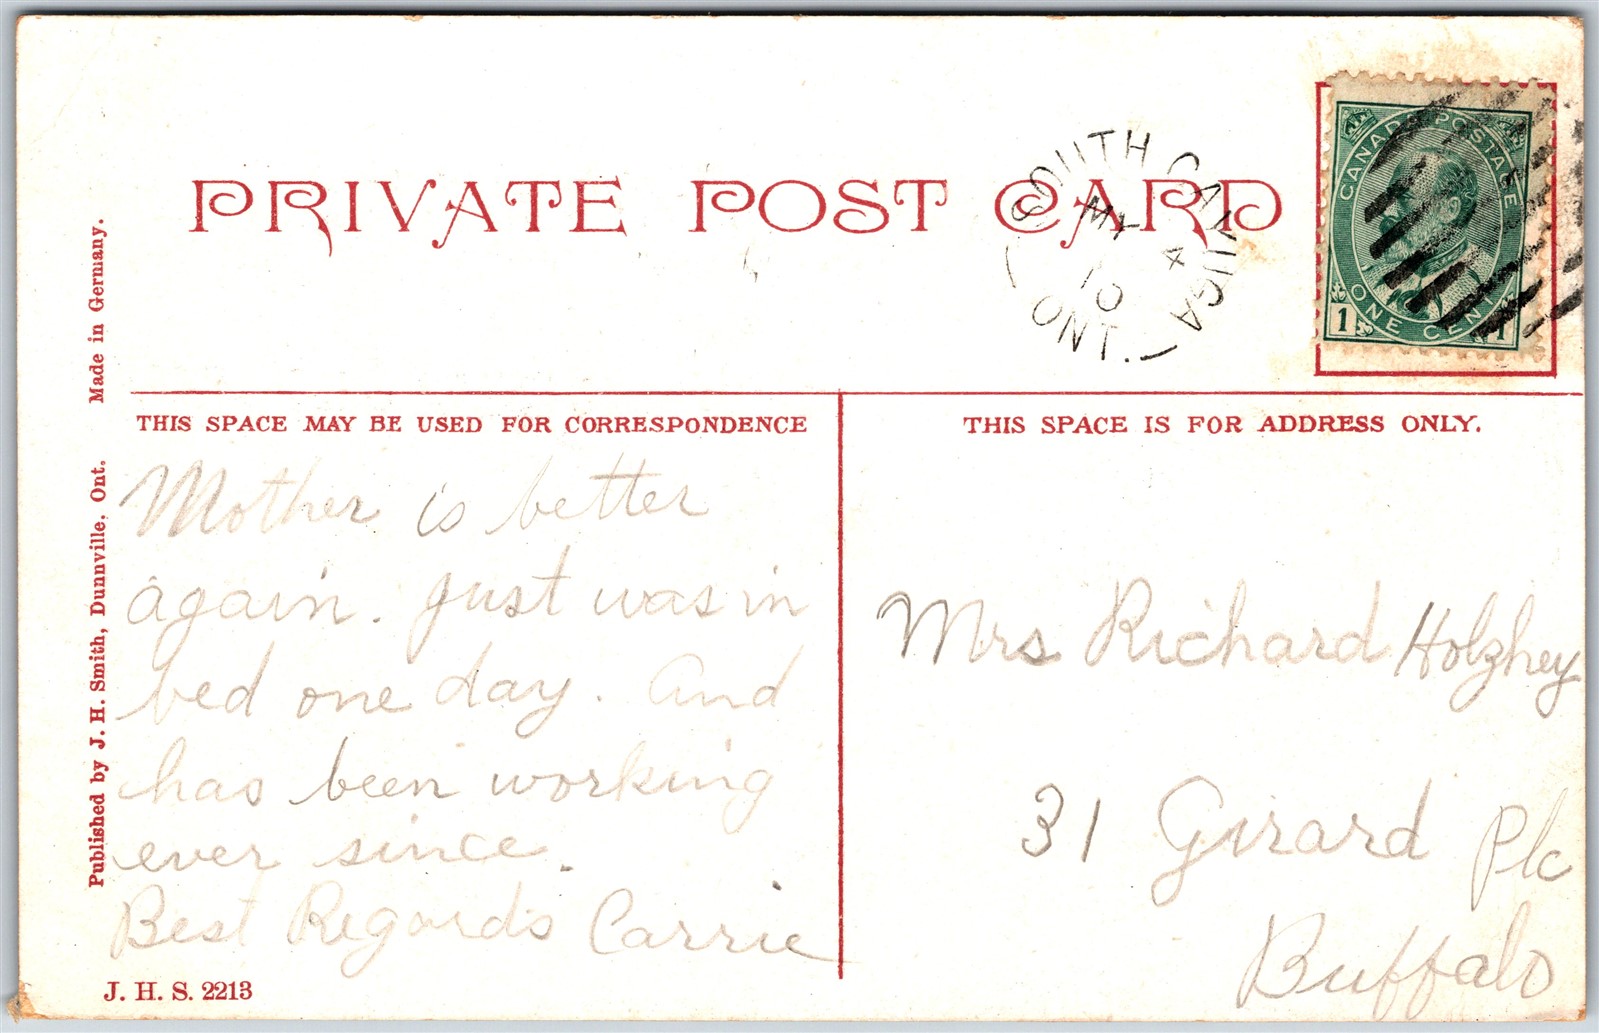 PRIVATE POST CARD
SOUTH CAYUGA
MY 4
10
ONT.
CANADA POSTAGE
ONE CENT
1 1
Made in Germany.
Published by J. H. Smith, Dunnville, Ont.
THIS SPACE MAY BE USED FOR CORRESPONDENCE
Mother is better
again. Just was in
bed one day. And
has been working
ever since.
Best Regards Carrie
J. H. S. 2213
THIS SPACE IS FOR ADDRESS ONLY.
Mrs Richard Holzhey
31 Girard Plc
Buffalo